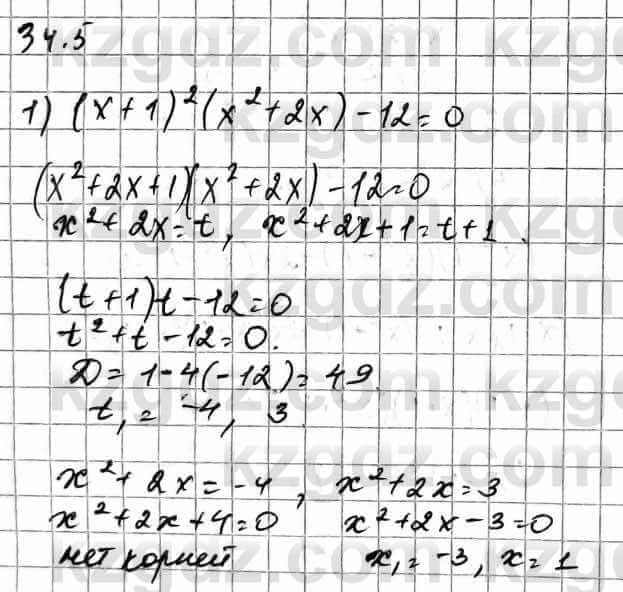 34.5
1) (x+1)²(x²+2x)-12=0
(x²+2x+1)(x²+2x)-12=0
x²+2x=t, x²+2x+1=t+1.
(t+1)t-12=0
t²+t-12=0.
D=1-4(-12)=49
t₁=-4, 3
x²+2x=-4, x²+2x=3
x²+2x+4=0 x²+2x-3=0
нет корней x₁=-3, x=1
kzgdz.com